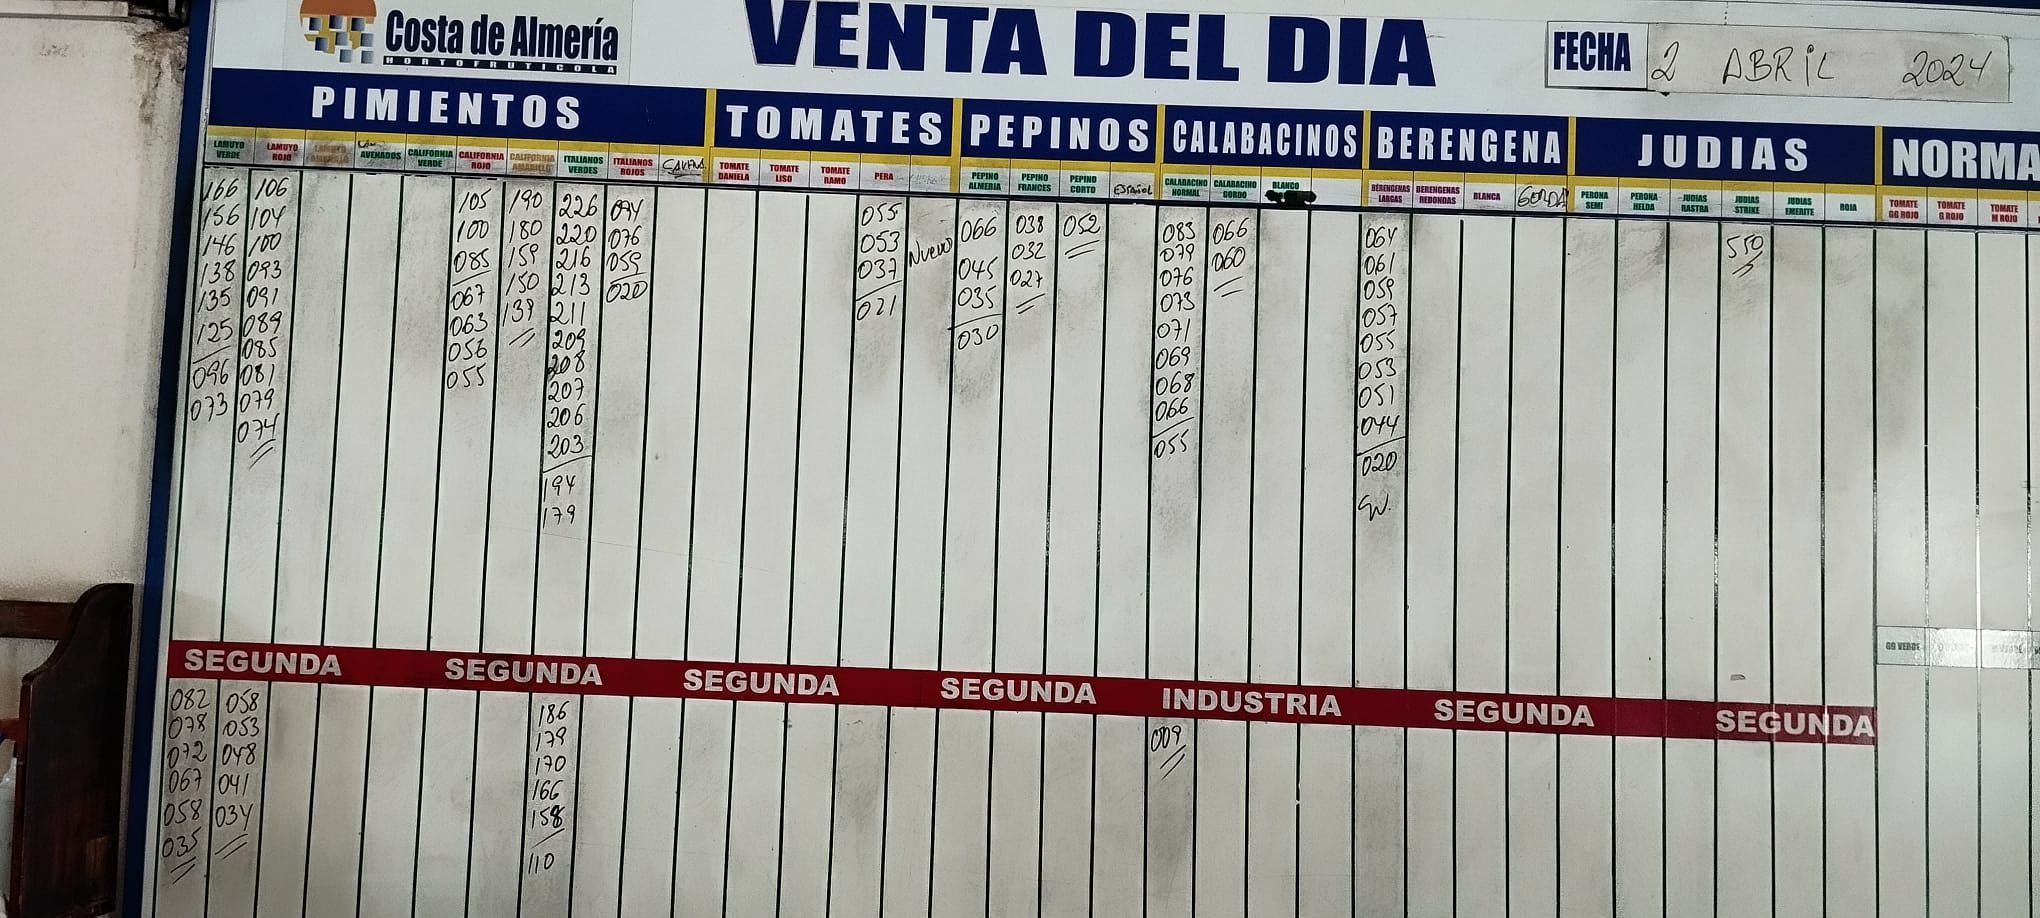 Costa de Almería
HORTOFRUTICOLA
VENTA DEL DIA
FECHA 2 ABRIL 2024
PIMIENTOS
TOMATES
PEPINOS
CALABACINOS
BERENGENA
JUDIAS
NORMA
LAMUYO VERDE
LAMUYO ROJO
LAMUYO AMARILLO
AVENADOS
CALIFORNIA VERDE
CALIFORNIA ROJO
CALIFORNIA AMARILLO
ITALIANOS VERDES
ITALIANOS ROJOS
TOMATE DANIELA
TOMATE LISO
TOMATE RAMO
PERA
PEPINO ALMERIA
PEPINO FRANCES
PEPINO CORTO
ESPAÑOL
CALABACINO NORMAL
CALABACINO GORDO
BLANCO
BERENGENAS LARGAS
BERENGENAS REDONDAS
BLANCA
GORDA
PERONA SEMI
PERONA HELDA
JUDIAS RASTRA
JUDIAS STRIKE
JUDIAS EMERITE
ROJA
TOMATE GG ROJO
TOMATE G ROJO
TOMATE M ROJO
166
156
146
138
135
125
096
073
106
104
100
093
091
089
085
081
079
074
105
100
085
067
063
056
055
190
180
159
150
139
226
220
216
213
211
209
208
207
206
203
194
179
094
076
059
020
055
053
037
021
Nuevo
066
045
035
030
038
032
027
052
083
079
076
073
071
069
068
066
055
066
060
064
061
059
057
055
053
051
044
020
550
GG VERDE
SEGUNDA
SEGUNDA
SEGUNDA
SEGUNDA
INDUSTRIA
SEGUNDA
SEGUNDA
082
078
072
067
058
035
058
053
048
041
034
186
179
170
166
158
110
009